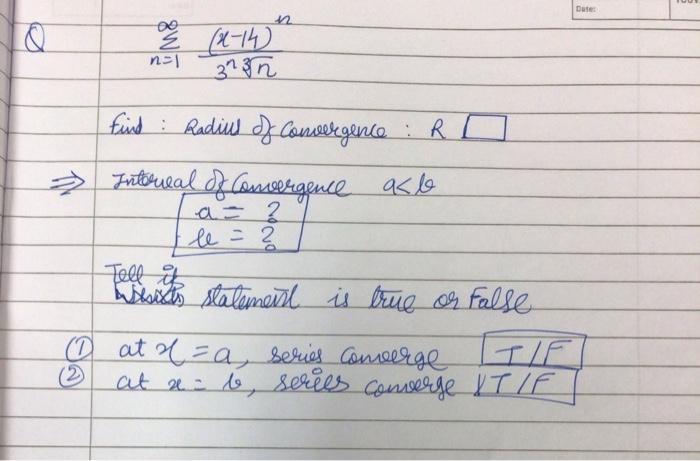 Date:
Q ∞ Σ n=1 (x-14)^n / 3^n ∛n
find : Radius of Convergence : R
⇒ Interval of Convergence a<b
a = ?
b = ?
Tell if
statement is true or False
① at x = a, series converge T/F
② at x = b, series converge T/F